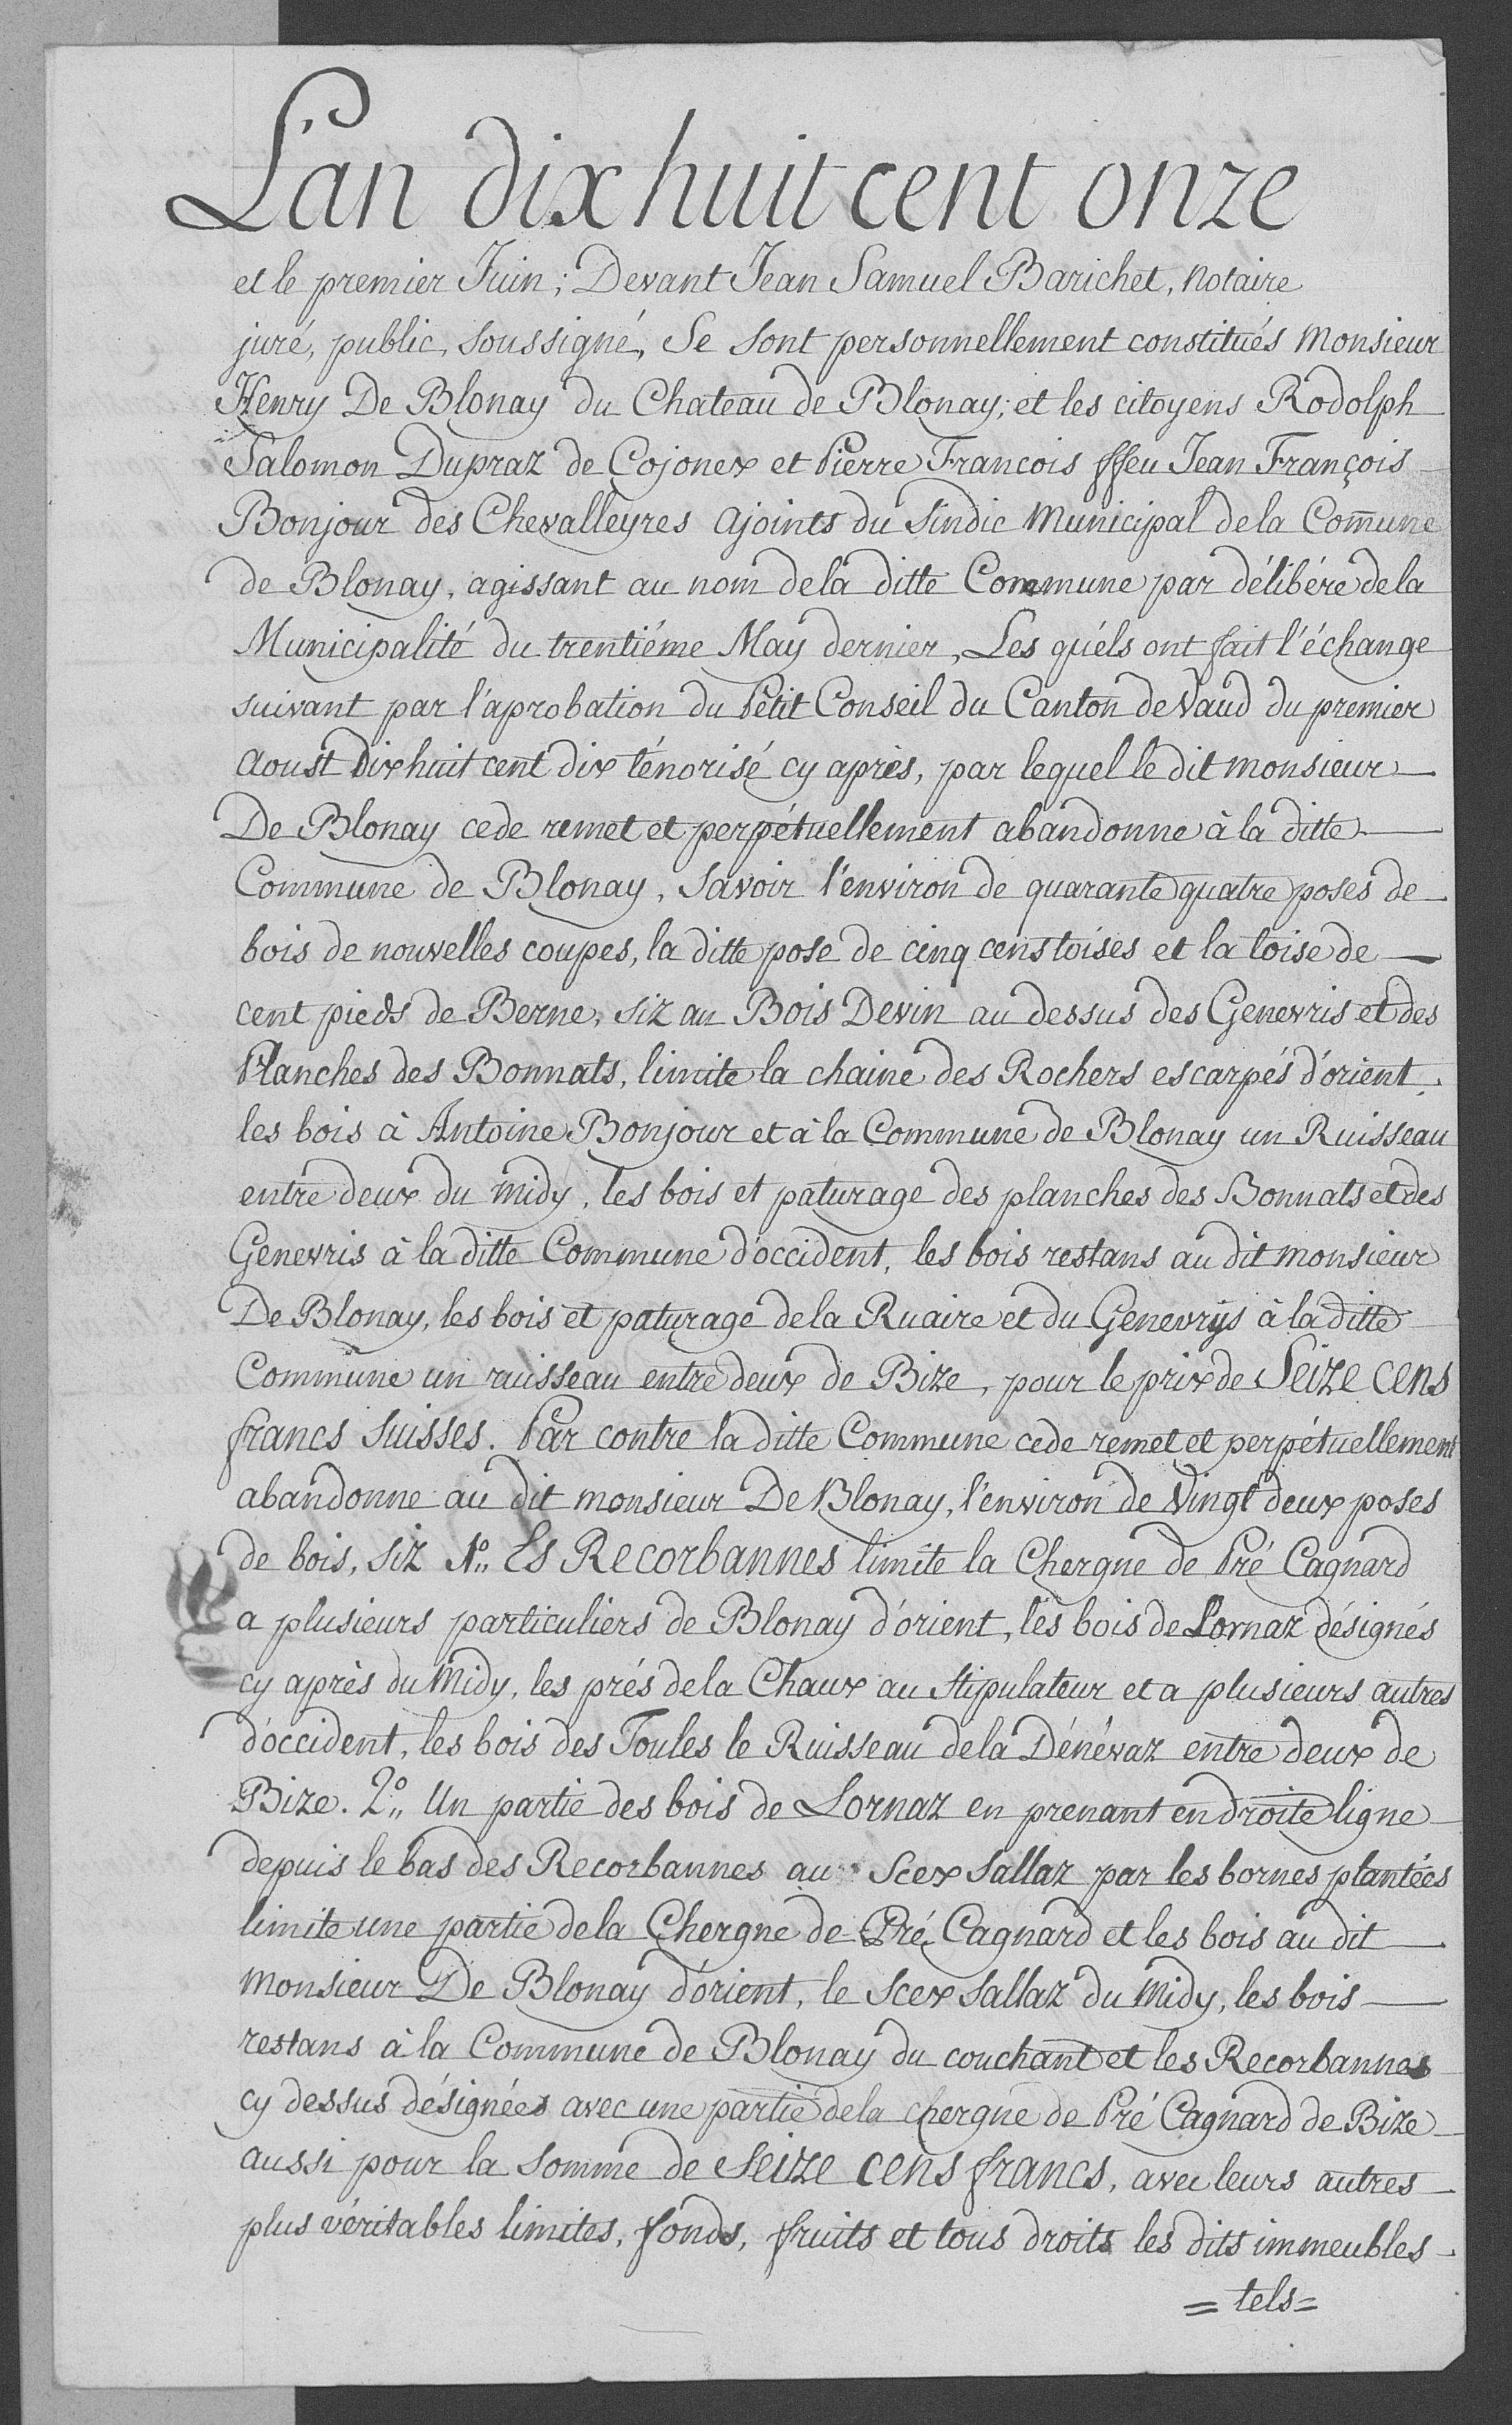 L'an dix huit cent onze
et le premier Juin; Devant Jean Samuel Barichet, Notaire
juré, public, soussigné, Se sont personnellement constitués Monsieur
Henry De Blonay du Chateau de Blonay; et les citoyens Rodolph
Salomon Dupraz de Cojonex et Pierre Francois ffeu Jean François
Bonjour des Chevalleyres ajoints du Sindic Municipal de la Com̄une
de Blonay, agissant au nom de la ditte Commune par délibére de la
Municipalité du trentiéme May dernier, Les quéls ont fait l'échange
suivant par l'aprobation du Petit Conseil du Canton de Vaud du premier
Aoust Dix huit cent dix ténorisé cy après, par lequel le dit monsieur
De Blonay cede remet et perpétuellement abandonne à la ditte
Commune de Blonay, Savoir l'environ de quarante quatre poses de
bois de nouvelles coupes, la ditte pose de cinq cens toises et la toise de
cent pieds de Berne, siz au Bois Devin au dessus des Genevris et des
Planches des Bonnats, limite la chaine des Rochers escarpés d'orient,
les bois à Antoine Bonjour et à la Commune de Blonay un Ruisseau
entre deux du midy, les bois et paturage des planches des Bonnats et des
Genevris à la ditte Commune d'occident, les bois restans au dit monsieur
De Blonay, les bois et paturage de la Ruaire et du Genevrÿs à la ditte
Commune un ruisseau entre deux de Bize, pour le prix de Seize cens
francs Suisses. Par contre la ditte Commune cede remet et perpétuellement
abandonne au dit monsieur De Blonay, l'environ de vingt deux poses
de bois, siz 1°,, Es Recorbannes limite la Chergne de Pré Cagnard
a plusieurs particuliers de Blonay d'orient, les bois de Lornaz désignés
cy après du Midy, les prés de la Chaux au stipulateur et a plusieurs autres
d'occident, les bois des Toules le Ruisseau de la Dénévaz entre deux de
Bize. 2°,, Un partie des bois de Lornaz en prenant en droite ligne
depuis le bas des Recorbannes au Scex Sallaz par les bornes plantées
limite une partie de la Chergne de Pré Cagnard et les bois au dit
monsieur De Blonay d'orient, le Scex Sallaz du Midy, les bois
restans à la Commune de Blonay du couchant et les Recorbannes
cy dessus désignées avec une partie de la chergne de Pré Cagnard de Bize
aussi pour la Somme de Seize cens francs, avec leurs autres
plus véritables limites, fonds, fruits et tous droits les dits immeubles
= tels =